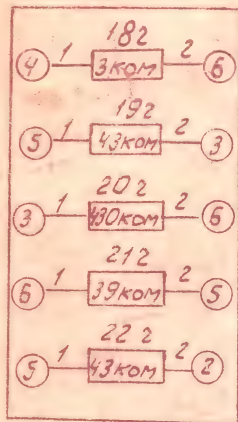 18г
④ 1 3ком 2 ⑥
19г
⑤ 1 43ком 2 ③
20г
③ 1 430ком 2 ⑥
21г
⑥ 1 39ком 2 ⑤
22г
⑤ 1 43ком 2 ②